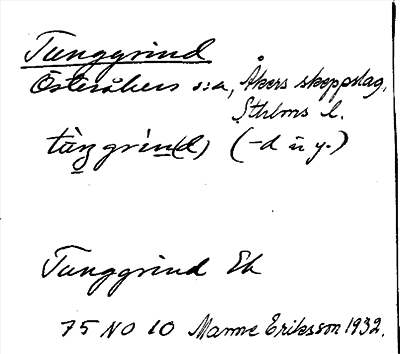 Tunggrind
Österåkers s:a, Åkers skeppslag,
Sthlms l.
tàŋgrìn(d) (-d ä y.)
Tunggrind Eh
75 NO 10 Manne Eriksson 1932.